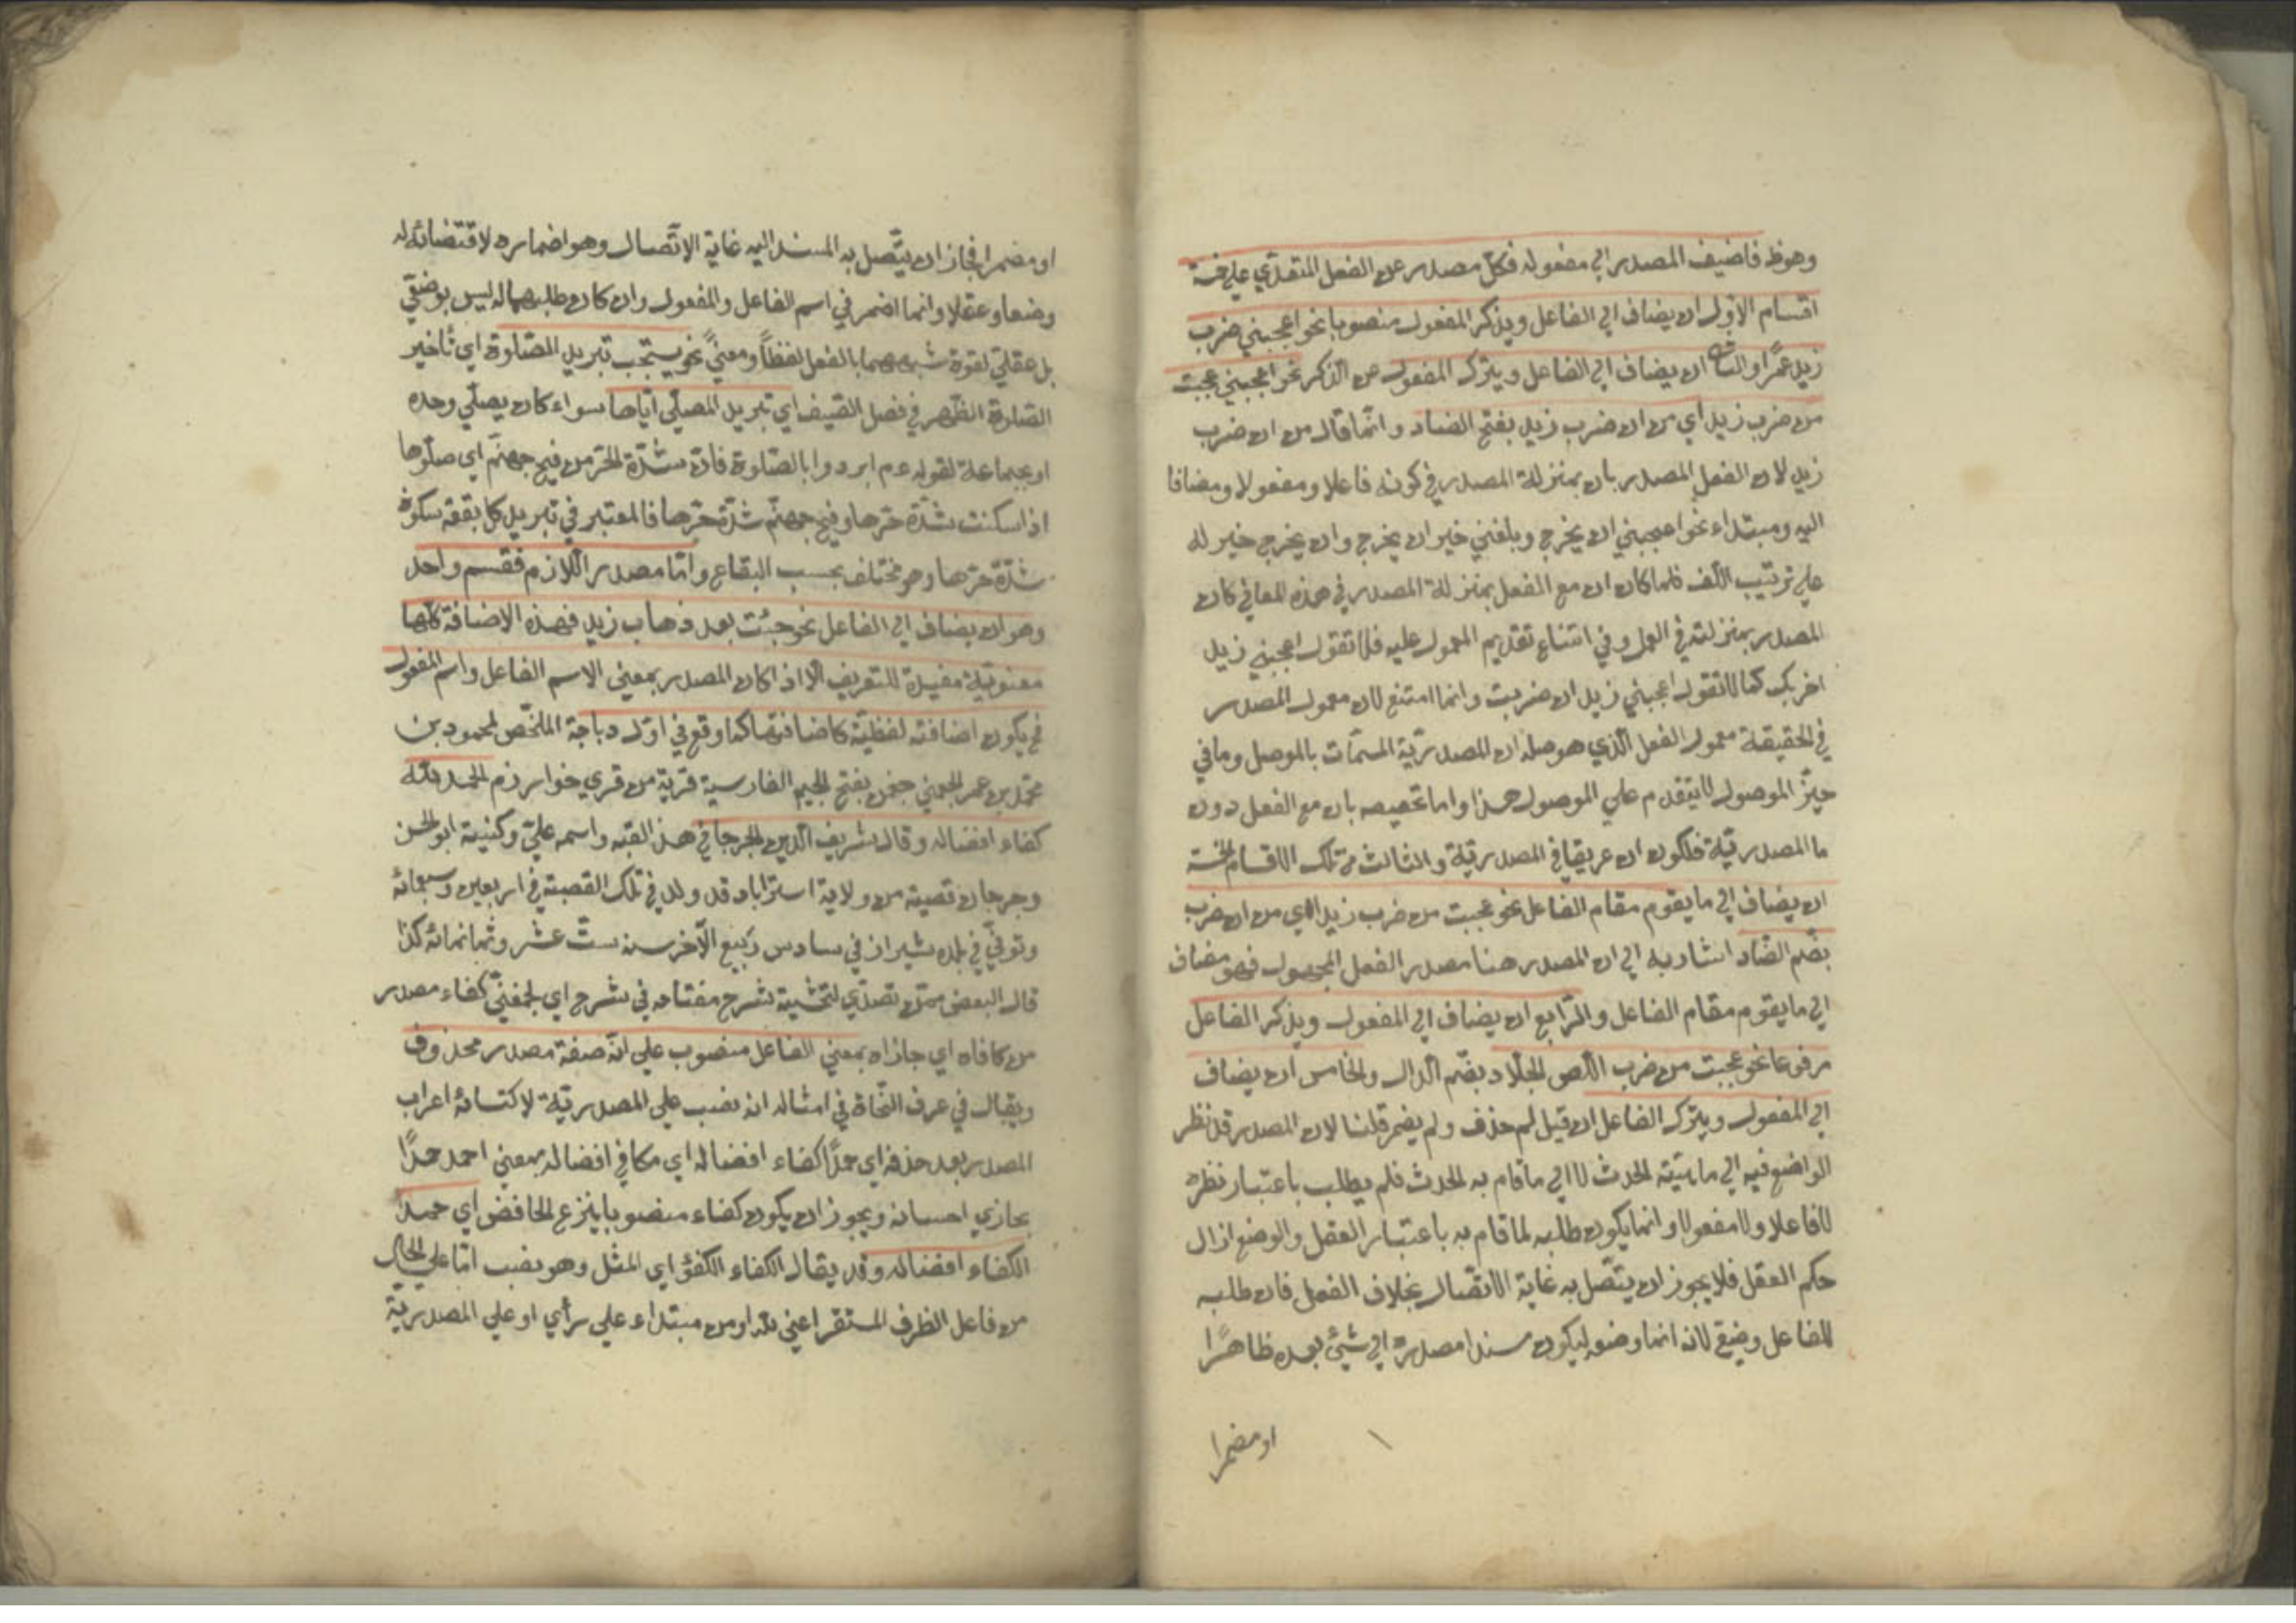 وهوظ فاضيف المصدر الي مفعوله فكلّ مصدر عن الفعل المتعدّي علي خمسة
اقسام الاوّل ان يضاف الي الفاعل ويذكر المفعول منصوبا نحو اعجبني ضرب
زيد عمرًا والثاني ان يضاف الي الفاعل ويترك المفعول عن الذكر نحو اعجبني عجبت
من ضرب زيد اي من ان ضرب زيد بفتح الضاد وانّما قال من ان ضرب
زيد لان الفعل المصدر بان بمنزلة المصدر في كونه فاعلا ومفعولا ومضافا
اليه ومبتداء نحو اعجبني ان يخرج وبلغني خير ان يخرج وان يخرج خير له
علي ترتيب اللف فلما كان ان مع الفعل بمنزلة المصدر في هذه المعاني كان
المصدر بمنزلته في العمل وفي امتناع تقديم المعمول عليه فلا تقول اعجبني زيد
اضربك كما لا تقول اعجبني زيد ان ضربت وانما امتنع لان معمول المصدر
في الحقيقة معمول الفعل الّذي هو صلة ان المصدريّة المسمّات بالموصل وما في
حيّز الموصول لا يتقدم علي الموصول هذا واما تخصيصه بان مع الفعل دون
ما المصدريّة فلكون ان عريقا في المصدريّة والثالث من تلك الاقسام الخمسة
ان يضاف الي ما يقوم مقام الفاعل نحو عجبت من ضرب زيد اي من ان ضرب
بضّم الضّاد اشار به الي ان المصدر هنا مصدر الفعل المجهول فهو مضاف
الي ما يقوم مقام الفاعل والرّابع ان يضاف الي المفعول ويذكر الفاعل
مرفوعا نحو عجبت من ضرب اللص الجلّاد بضّم الدال والخامس ان يضاف
الي المفعول ويترك الفاعل ان قيل لم حذف ولم يضمر قلنا لان المصدر قد نظر
الواضع فيه الي ماهيّة الحدث لا الي ما قام به الحدث فلم يطلب باعتبار نظره
لا فاعلا ولا مفعولا وانما يكون طلبه لما قام به باعتبار العقل والوضع ازال
حكم العقل فلا يجوز ان يتّصل به غاية الاتّصال بخلاف الفعل فان طلبه
للفاعل وضعي لانه انما وضعه ليكون مسندا مصدره الي شيئ بعده ظاهرًا
او مضمرا
او مضمرا فجاز ان يتّصل به المسند اليه غاية الاتّصال وهو اضماره لاقتضائه له
وضعا وعقلا وانما اضمر في اسم الفاعل والمفعول وان كان طلبهما له ليس بوضعيّ
بل عقليّ لقوة شبههما بالفعل لفظاً ومعنيً نحو يستحب تبريد الصّلوة اي تأخير
الصّلوة الظّهر في فصل الصّيف اي تبريد المصلّي ايّاها سواء كان يصلّي وحده
او بجماعة لقوله عم ابردوا بالصّلوة فانّ شدّة الحرّ من فيح جهنّم اي صلّوها
اذا سكنت شدّة حرّها وفيح جهنّم شدّة حرّها فالمعتبر في تبريد كل بقعة سكون
شدّة حرّها وهو مختلف بحسب البقاع وامّا مصدر اللازم فقسم واحد
وهو ان يضاف الي الفاعل نحو جئت بعد ذهاب زيد فهذه الاضافة كلّها
معنويّة مفيدة للتعريف الّا اذا كان المصدر بمعني الاسم الفاعل واسم المفعول
فح يكون اضافته لفظيّة كاضافتهما كما وقع في اوّل دباجة الملخّص لمحمود بن
محمّد بن عمر الجغميني جغمن بفتح الجيم الفارسية قرية من قري خوارزم الحمد لله
كفاء افضاله وقال شريف الدين الجرجاني هذا لقبه واسمه عليّ وكنيته ابو الحسن
وجرجان قصبة من ولاية استراباد قد ولد في تلك القصبة في اربعين وسبعمائة
وتوفّي في بلده شيراز في سادس ربيع الآخر سنه ستّ عشر وثمانمائه كذا
قال البعض ممّن تصدّي لتحشية شرح مفتاحه في شرح اي لجغمنيّ كفاء مصدر
من كافاه اي جازاه بمعني الفاعل منصوب علي انّه صفة مصدر محذوف
ويقال في عرف النحاة في امثاله انه نصب علي المصدريّة لاكتسائه اعراب
المصدر بعد حذفه اي حمدًا كفاء افضاله اي مكافي افضاله بمعني احمد حمدًا
يجازي احسانه ويجوز ان يكون كفاء منصوبا بنزع الخافض اي حمدًا
الكفاء افضاله وقد يقال الكفاء الكفؤ اي المثل وهو نصب امّا علي الحال
من فاعل الظرف المستقر اعني لله او من مبتداء علي رأي او علي المصدريّة